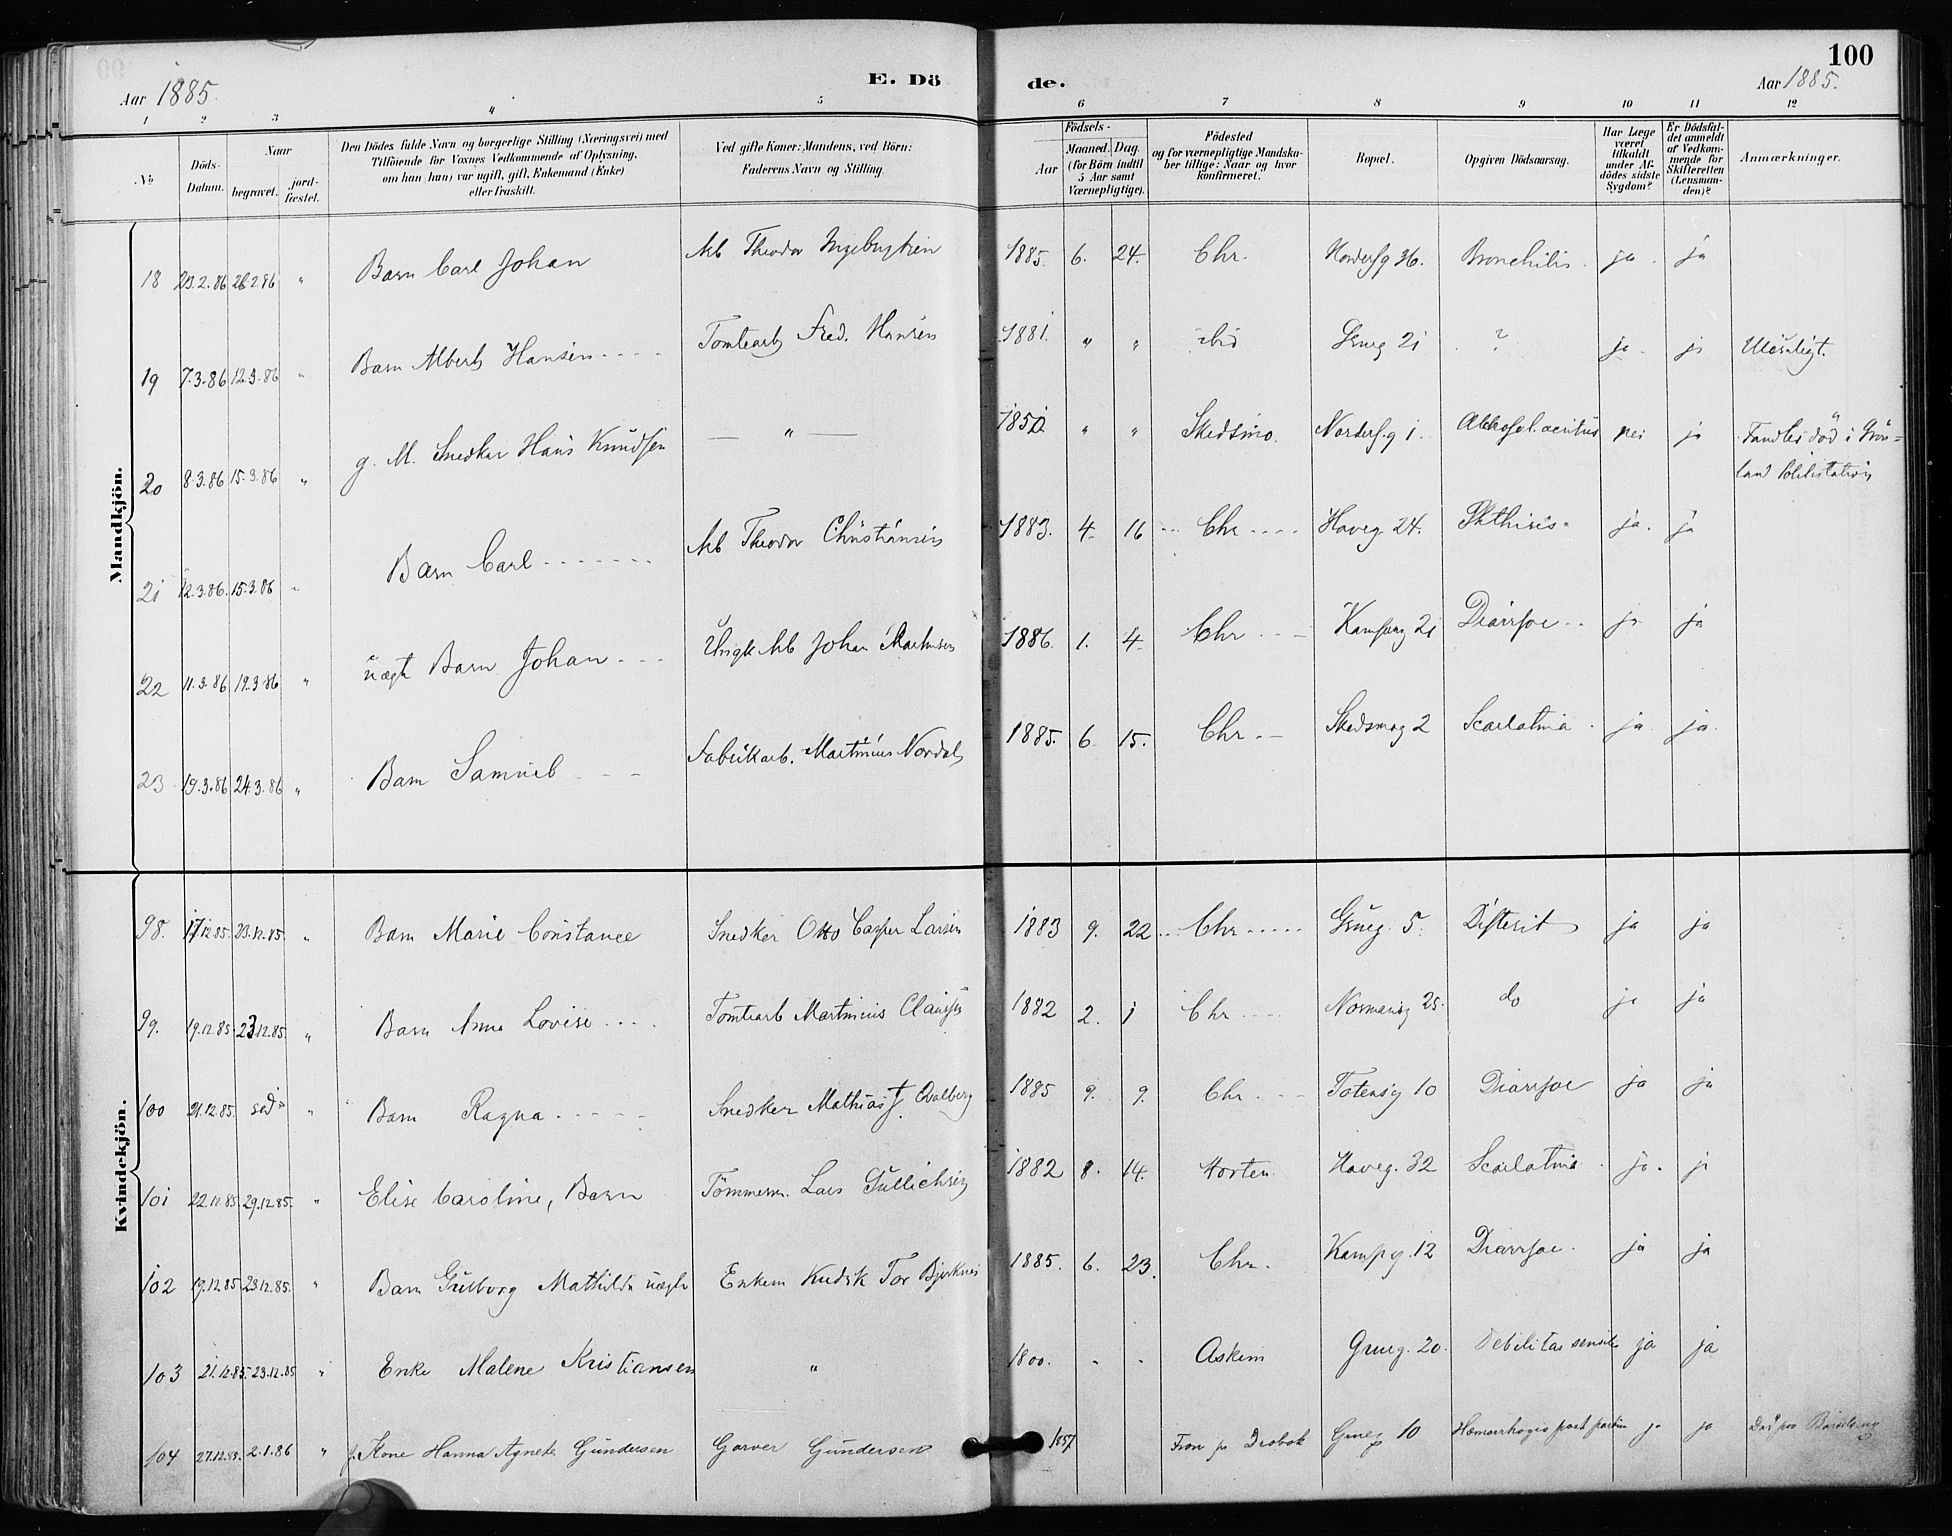 100
Aar 1885.
E. Dö de.
Aar 1885.
1 2 3 4 5 6 7 8 9 10 11 12
No
Döds-Datum.
Naar
begravet.
jord-fæstet.
Den Dödes fulde Navn og borgerlige Stilling (Næringsvei) med
Tilföiende for Voxnes Vedkommende af Oplysning,
om han (hun) var ugift, gift, Enkemand (Enke)
eller fraskilt.
Ved gifte Koner: Mandens, ved Börn:
Faderens Navn og Stilling.
Födsels-
Aar
Maaned. Dag.
(for Börn indtil
5 Aar samt
Værnepligtige).
Födested
og for værnepligtige Mandska-
ber tillige: Naar og hvor
konfirmeret.
Bopæl.
Opgiven Dödsaarsag.
Har Læge
været
tilkaldt
under Af-
dödes sidste
Sygdom?
Er Dödsfal-
det anmeldt
af Vedkom-
mende for
Skifteretten
(Lensman-
den)?
Anmærkninger.
Mandkjön.
18 23.2.86 26.2.86 " Barn Carl Johan Arb Theodor 1885. 6. 24. Chr. 36. Bronchitis. ja. ja
19 7.3.86 12.3.86 " Barn Albert Hansen Tomtearb Fred. Hansen 1881. " " ibid 21 ? ja. ja Ulöseligt.
20 8.3.86 15.3.86 " g. M. Snedker Hans Knudsen — " — " " Skedsmo. Norderfg 1. nei ja Fandtes död i Grön=
land Politistation
21 12.3.86. 15.3.86 " Barn Carl Arb Theodor Christiansen 1883. 4. 16 Chr Haveg. 24. Phthisis. ja. ja
22 11.3.86 19.3.86 " uægte Barn Johan Ungk Arb Johan 1886. 1. 4. Chr Kampeng 21 Diarrhoe ja ja
23 19.3.86 24.3.86 " Barn Samuel Fabrikarb. Martinius Nordal 1885. 6. 15. Chr. Skedsmog 2 Scarlatina ja ja.
Kvindekjön.
98. 17.12.85 23.12.85 " Barn Marie Constance Snedker Otto Casper Larsen 1883 9. 22 Chr Grueg. 5. Difterit ja ja
99. 19.12.85 23.12.85. " Barn Anna Lovise Tomtearb Martinius Clausen 1882 2. 1 Chr Normansg 25. do ja ja
100 21.12.85. " Barn Ragna Snedker Mathias 1885 9. 9. Chr. Totensg 10 Diarrhoe ja ja
101 22.12.85. 29.12.85. " Elise Caroline, Barn Tömmerm. Lars Gullichsen 1882 8. 14. Horten Haveg. 32 Scarlatina. ja. ja
102 19.12.85 23.12.85. " Barn Gudborg Mathilde uægte Enkem Kudsk Tor Bjerknes 1885. 6. 23. Chr. Kampg. 12 Diarrhoe. ja ja
103 21.12.85. 23.12.85 " Enke Malene Kristiansen " 1800. - - Askim Grueg. 20. Debilitas senilis ja ja
104 27.12.85. 2.1.86 " g. Kone Hanna Agnete Gundersen Garver Gundersen 1857 Fron pr Dröbak Grueg 10 Hæmorrhagia post partum ja ja Död paa Barselseng